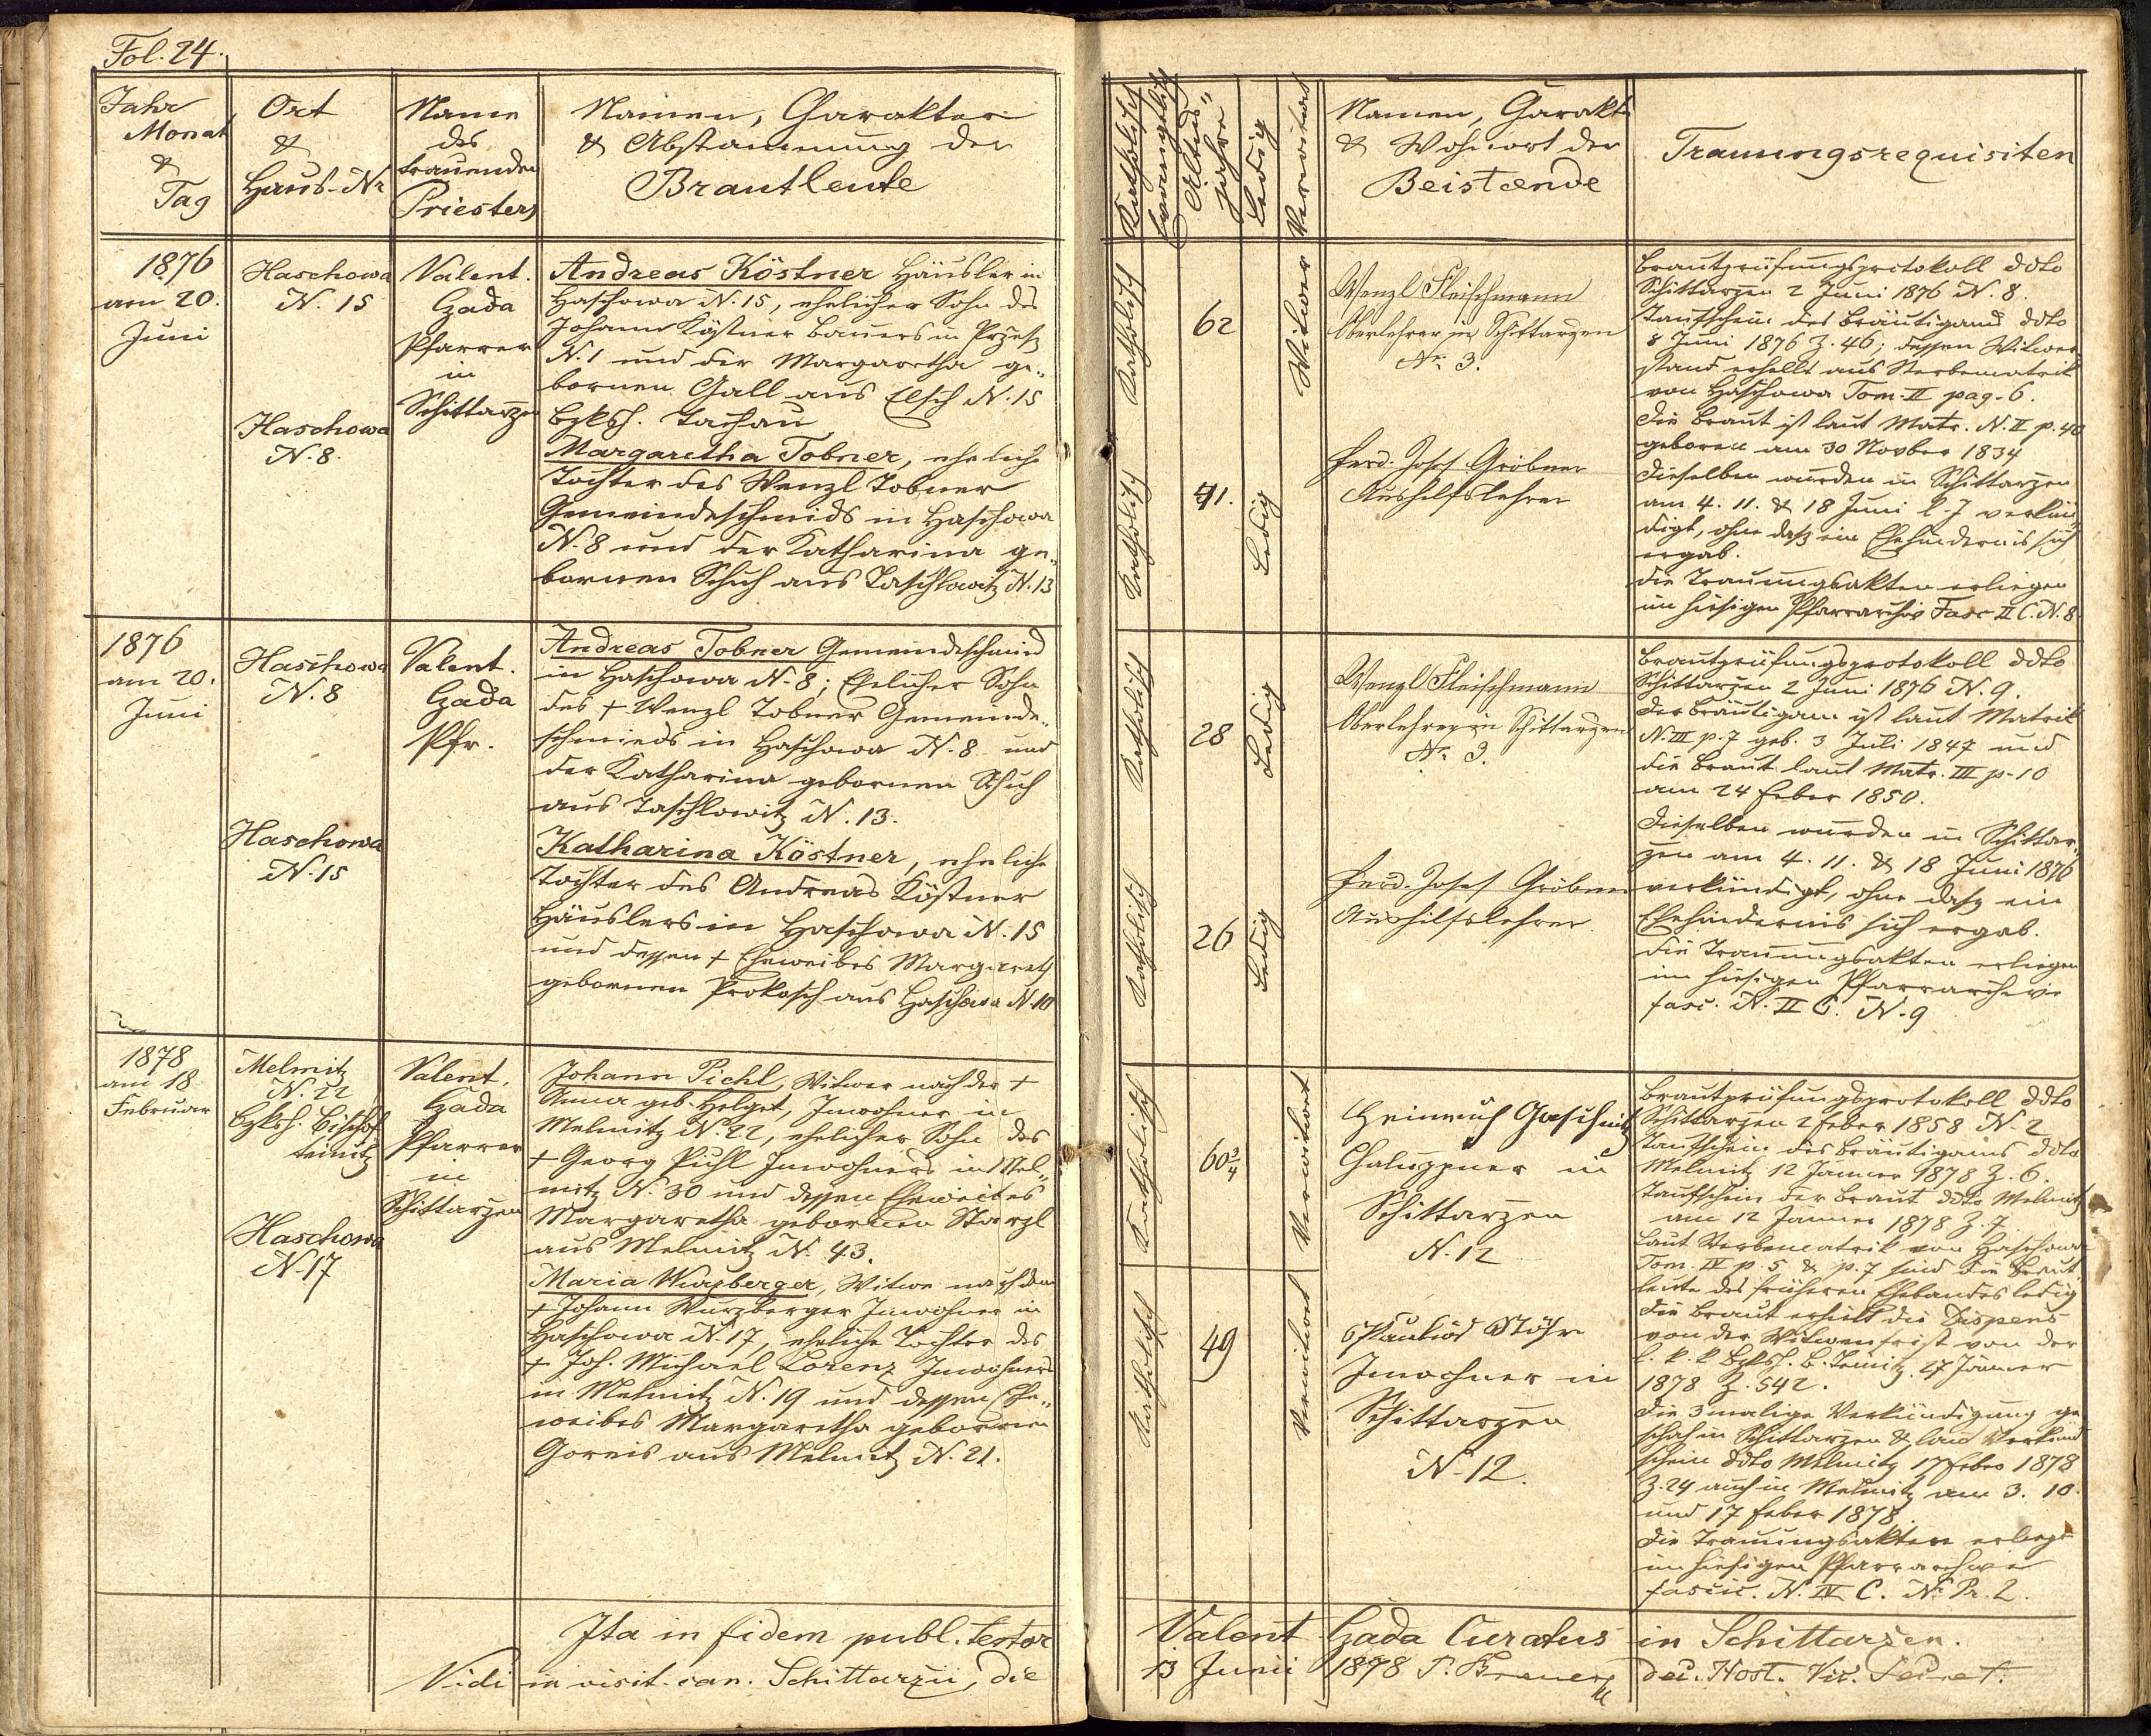 Fol. 24.
Jahr
Monat
&
Tag
Ort
&
Haus-Nr
Name
des
trauenden
Priesters
Namen, Charakter
& Abstammung der
Brautleute
1876
am 20.
Juni
Haschowa
N. 15
Haschowa
N. 8.
Valent.
Gada
Pfarrer
in
Schittarzen
Andreas Köstner Häusler in
Haschowa N. 15, ehelicher Sohn des
Johann Köstner Bauers in
N. 1 und der Margaretha ge„
bornen Gall aus Elsch N. 15
Bzksh. Tachau
Margaretha Tobner, eheliche
Tochter des Wenzl Tobner
Gemeindeschmids in Haschowa
N. 8 und der Katharina ge„
bornen Schuh aus Taschlowitz N. 13
1876
am 20.
Juni
Haschowa
N. 8
Haschowa
N. 15
Valent.
Gada
Pfr.
Andreas Tobner Gemeindeschmied
in Haschowa N. 8; Ehelicher Sohn
des + Wenzl Tobner Gemeinde„
schmieds in Haschowa N. 8 und
der Katharina gebornen Schuh
aus Taschlowitz N. 13.
Katharina Köstner, eheliche
Tochter des Andreas Köstner
Häuslers in Haschowa N. 15
und dessen + Eheweibes Margareth
gebornen Prokosch aus Haschowa N. 10
1878
am 18
Februar
Melmitz
N. 22
Bzksh. Bischof
teinitz
Haschowa
N. 17
Valent.
Gada
Pfarrer
in
Schittarzen
Johann Pichl, Witwer nach der +
Anna geb. Helget, Inwohner in
Melmitz N. 22, ehelicher Sohn des
+ Georg Pichl Inwohners in Mel„
mitz N. 30 und dessen Eheweibes
Margaretha gebornen Starzl
aus Melmitz N. 43.
Maria Wurzberger, Witwe nach dem
+ Johann Wurzberger Inwohner in
Haschowa N. 17, eheliche Tochter des
+ Joh. Michael Lorenz Inwohners
in Melmitz N. 19 und dessen Ehe„
weibes Margaretha gebornen
Goreis aus Melmitz N. 21.
Ita in fidem publ. testor
Vidi in visit. can. Schittarzii, die
Katholisch
Evangelisch
Alters„
jahre
Ledig
Verwitwet
Namen, Charakt.
& Wohnort der
Beistænde
Trauungsrequisiten
Katholisch
62
Witwer
Katholisch
41.
Ledig
Wenzl Fleischmann
Oberlehrer in Schittarzen
Nr. 3.
Ferd. Josef Gröbner
Aushilfslehrer
Brautprüfungsprotokoll ddto
Schittarzen 2 Juni 1876 N. 8.
Taufschein des Bräutigams ddto
8 Juni 1876 Z. 46; dessen Witwer„
stand erhellt aus Sterbematrik
von Haschowa Tom. II pag. 6.
Die Braut ist laut Matr. N. II p. 40
geboren am 30 Novber 1834
Dieselben wurden in Schittarzen
am 4. 11. & 18 Juni l. J verkün„
digt, ohne daß ein Ehehindernis sich
ergab.
Die Trauungsakten erliegen
im hiesigen Pfarrarchiv Fasc II C. N. 8
Katholisch
28
Ledig
Katholisch
26
Ledig
Wenzl Fleischmann
Oberlehrer in Schittarzen
Nr. 3.
Ferd. Josef Gröbner
Aushilfslehrer
Brautprüfungsprotokoll ddto
Schittarzen 2 Juni 1876 N. 9.
Der Bräutigam ist laut Matrik
N. III p. 7 geb. 3 Juli 1847 und
die Braut laut Matr. III p. 10
am 24 Feber 1850.
Dieselben wurden in Schittar„
zen am 4. 11. & 18 Juni 1876
verkündigt, ohne daß ein
Ehehindernis sich ergab.
Die Trauungsakten erliegen
im hiesigen Pfarrarchive
fasc. N. II C. N. 9
Katholisch
60 3/4
Verwitwet
Katholisch
49
Verwitwet
Heinrich
Chaluppner in
Schittarzen
N. 12
Stöhr
Inwohner in
Schittarzen
N. 12.
Brautprüfungsprotokoll ddto
Schittarzen 2 Feber 1858 N. 2
Taufschein des Bräutigams ddto
Melmitz 12 Jänner 1878 Z. 6.
Taufschein der Braut ddto Melmitz
am 12 Jänner 1878 Z. 7.
Laut Sterbematrik von Haschowa
Tom. IV p. 5 & p. 7 sind die Braut
leute des früheren Ehebandes ledig
Die Braut erhielt die Dispens
von der Witwenfrist von der
l. k. k Bzksh. B. Teinitz 27 Jänner
1878 Z. 542.
Die 3malige Verkündigung ge
schah in Schittarzen & laut Verkünd
schein ddto Melmitz 17 Feber 1878
Z. 24 auch in Melmitz am 3. 10.
und 17 Feber 1878.
Die Trauungsakten erliege
im hiesigen Pfarrarchive
fascic. N. IV C. N. Pr. 2.
Valent Gada Curatus in Schittarzen.
13 Junii 1878 dec. Host. Vic.